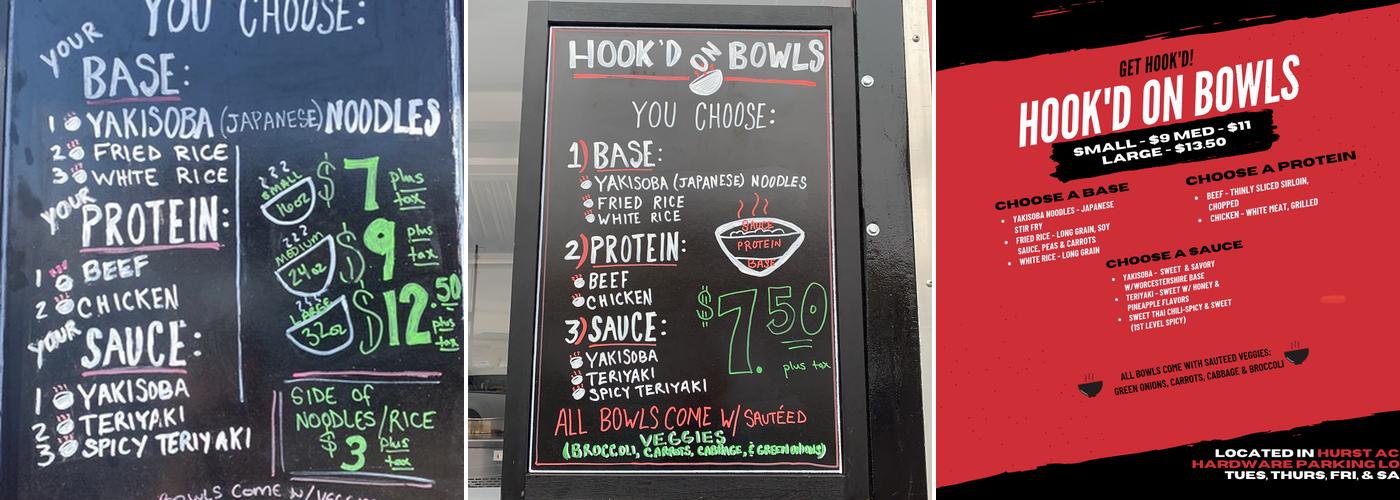 YOU CHOOSE:
YOUR
BASE:
1 YAKISOBA (JAPANESE) NOODLES
2 FRIED RICE
3 WHITE RICE
YOUR
PROTEIN:
1 BEEF
2 CHICKEN
YOUR
SAUCE:
1 YAKISOBA
2 TERIYAKI
3 SPICY TERIYAKI
SMALL
16oz
$7 plus tax
MEDIUM
24oz
$9 plus tax
LARGE
32oz
$12.50 plus tax
SIDE OF
NOODLES/RICE
$3 plus tax
BOWLS COME W/
HOOK'D ON BOWLS
YOU CHOOSE:
1) BASE:
YAKISOBA (JAPANESE) NOODLES
FRIED RICE
WHITE RICE
2) PROTEIN:
BEEF
CHICKEN
3) SAUCE:
YAKISOBA
TERIYAKI
SPICY TERIYAKI
SAUCE
PROTEIN
BASE
$7.50
plus tax
ALL BOWLS COME W/ SAUTÉED
VEGGIES
(BROCCOLI, CARROTS, CABBAGE, & GREEN ONIONS)
GET HOOK'D!
HOOK'D ON BOWLS
SMALL - $9 MED - $11
LARGE - $13.50
CHOOSE A BASE
YAKISOBA NOODLES - JAPANESE
STIR FRY
FRIED RICE - LONG GRAIN, SOY
SAUCE, PEAS & CARROTS
WHITE RICE - LONG GRAIN
CHOOSE A PROTEIN
BEEF - THINLY SLICED SIRLOIN,
CHOPPED
CHICKEN - WHITE MEAT, GRILLED
CHOOSE A SAUCE
YAKISOBA - SWEET & SAVORY
W/WORCESTERSHIRE BASE
TERIYAKI - SWEET W/ HONEY &
PINEAPPLE FLAVORS
SWEET THAI CHILI-SPICY & SWEET
(1ST LEVEL SPICY)
ALL BOWLS COME WITH SAUTEED VEGGIES:
GREEN ONIONS, CARROTS, CABBAGE & BROCCOLI
LOCATED IN HURST AC
HARDWARE PARKING LO
TUES, THURS, FRI, & SA